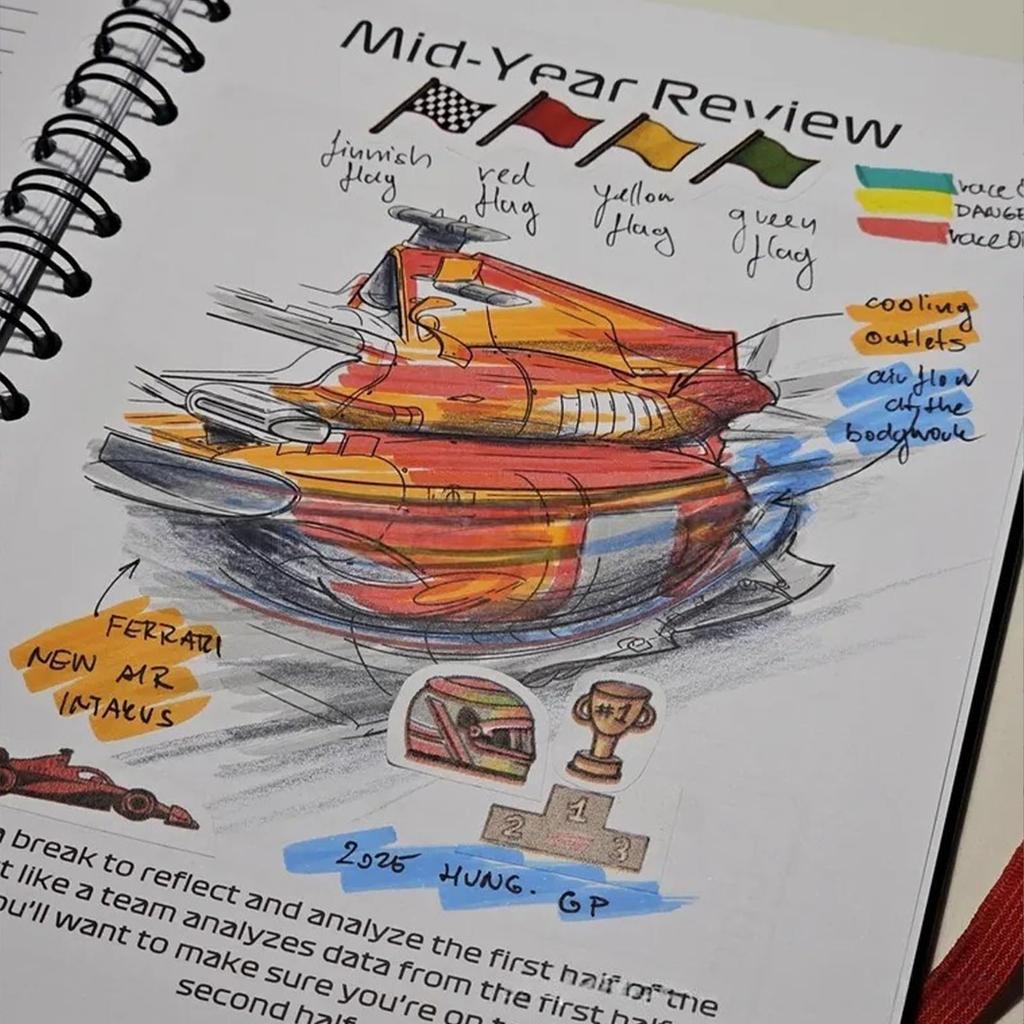 Mid-Year Review
finnish
flag
red
flag
yellow
flag
green
flag
race
DANGE
race O
cooling
outlets
air flow
at the
bodywork
FERRARI
NEW AIR
INTAKES
#1
1
2
3
2025 HUNG. GP
break to reflect and analyze the first half of the
like a team analyzes data from the first half
ou'll want to make sure you're on
second half